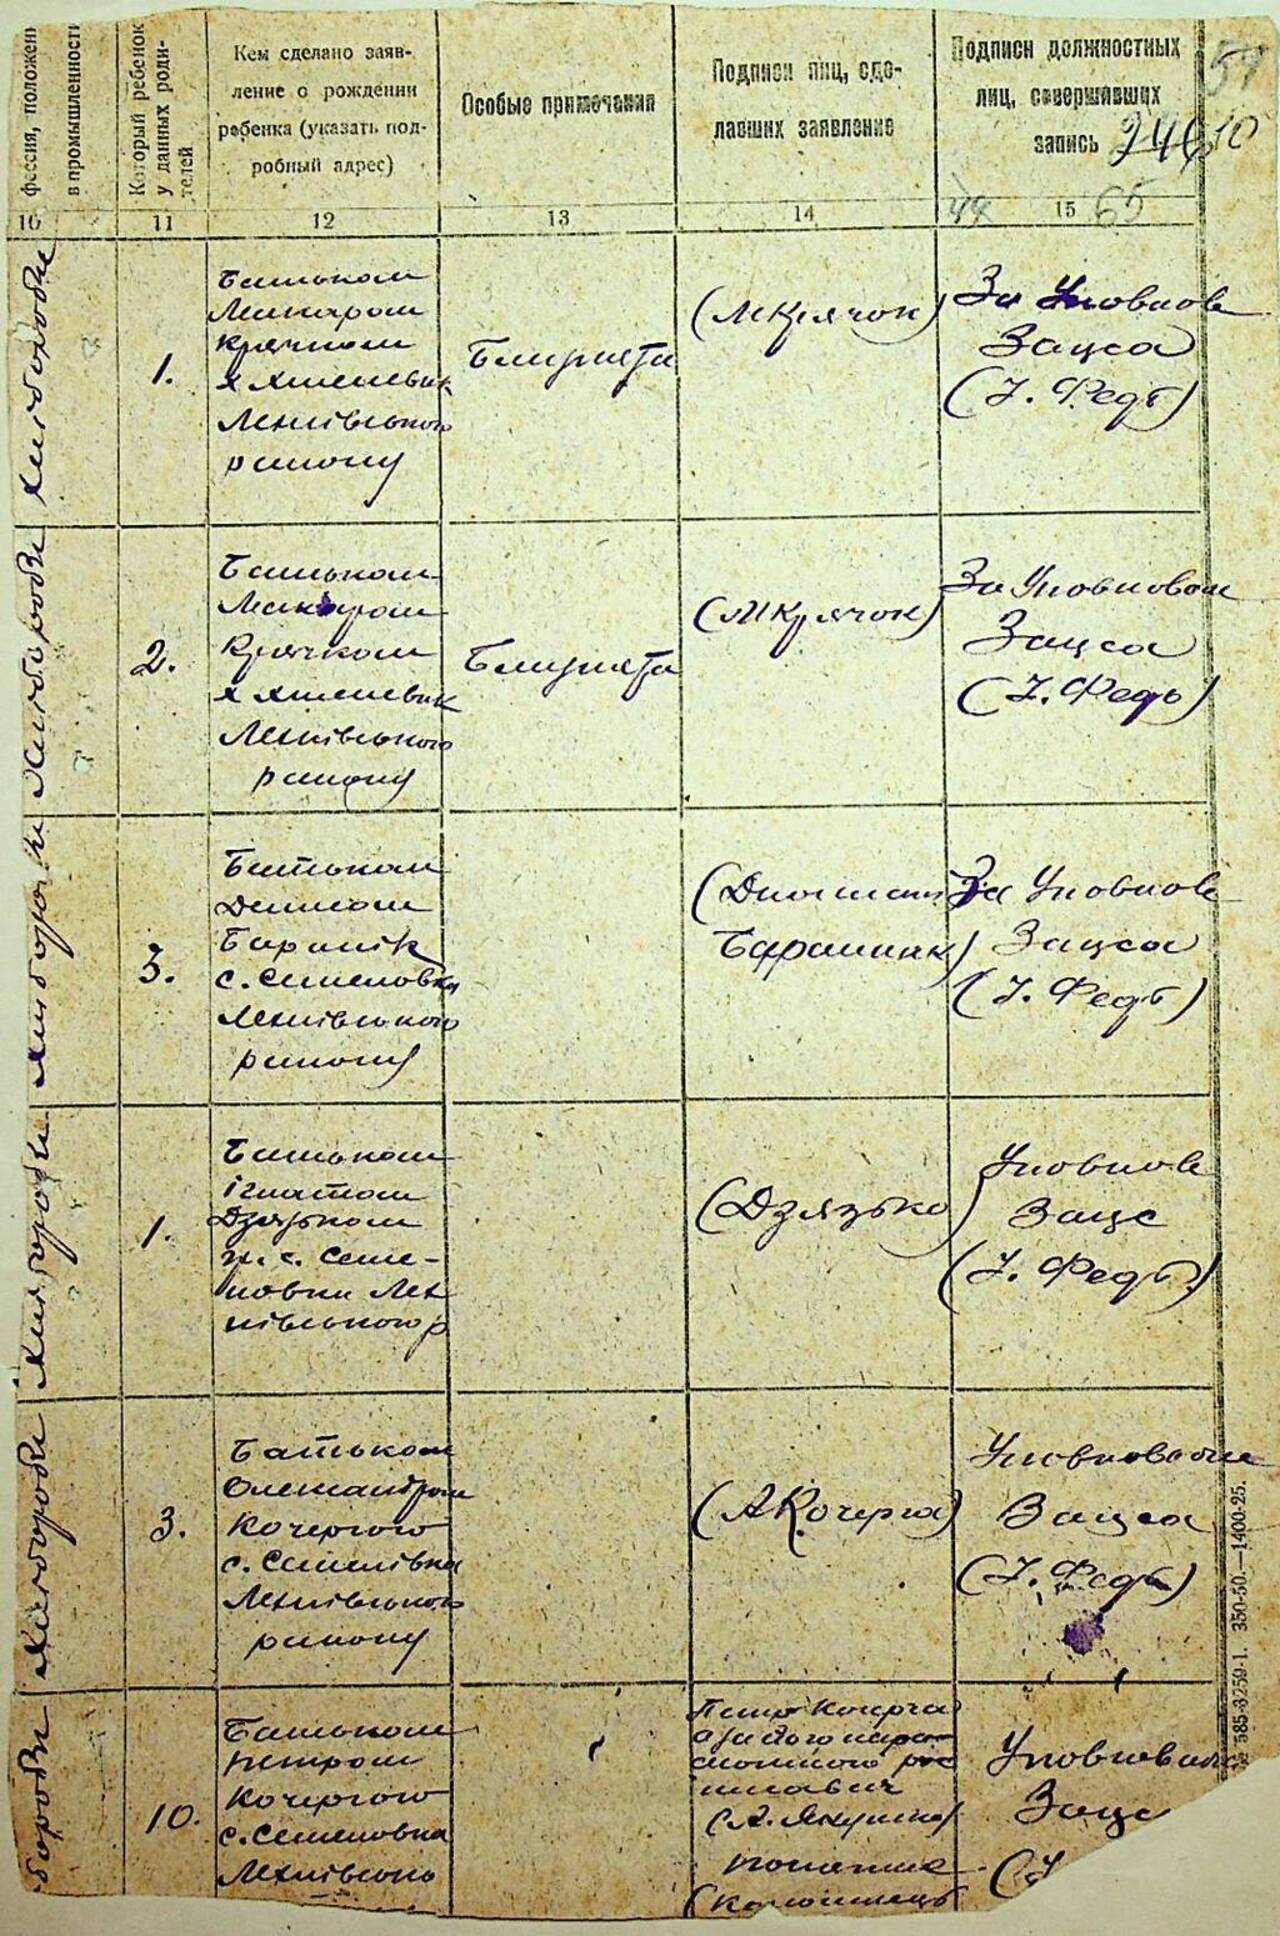 фессия, положен
в промышленности
Который ребенок
у данных роди-
телей
Кем сделано заяв-
ление о рождении
ребенка (указать под-
робный адрес)
Особые примечания
Подписи лиц, сде-
лавших заявление
Подписи должностных
лиц, совершивших
запись
57
246 10
44
65
10
11
12
13
14
15
хлібороби
1.
Батьком
Макаром
Крячком
Ленківського
району
Близнята
(МКрячок)
За Уповнов
Загса
(І. Федь)
хлібороби
2.
Батьком
Макаром
Крячком
Ленківського
району
Близнята
(МКрячок)
За Уповноваж
Загса
(І. Федь)
хлібороби
3.
Батьком
Баранік
с. Семеновка
Ленківського
району
Баранник)
За Уповнов
Загса
(І. Федь)
хлібороби
1.
Батьком
Ігнатом
Дзязьком
ж. с. Семе-
новки Лен
ківського р
(Дзязько)
Уповнов
Загс
(І. Федь)
хлібороби
3.
Батьком
Олександром
Кочергою
с. Семенівка
Ленківського
району
(АКочерга)
Уповноваж
Загса
(І. Федь)
бороби
10.
Батьком
Петром
Кочергою
с. Семеновка
Ленківсько
Петро Кочерга
а за його
Уповноваж
Загс
585-8259-1. 350-50.—1400-25.